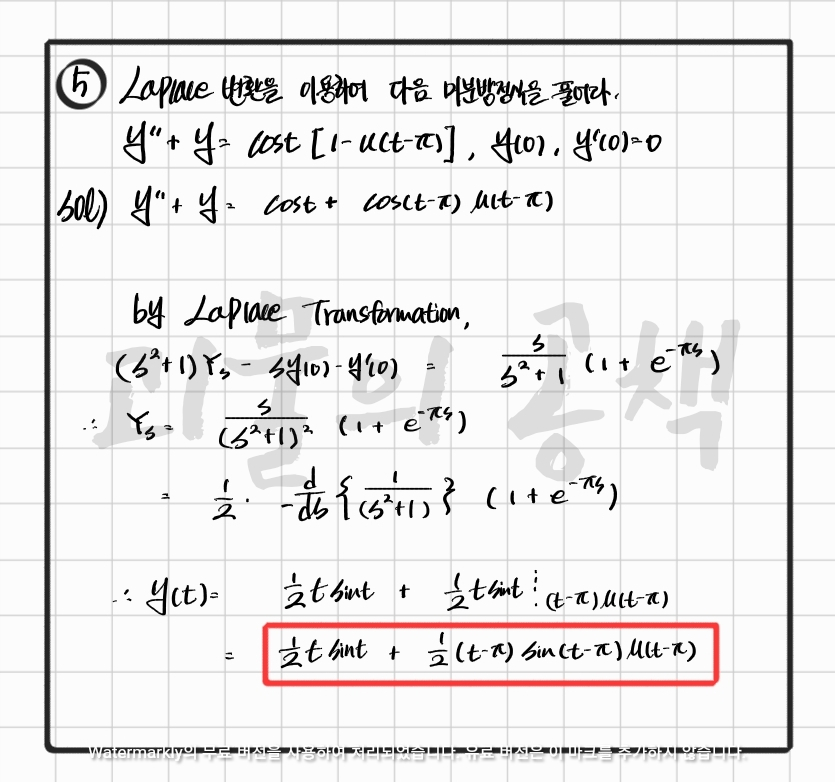 ⑤ Laplace 변환을 이용하여 다음 미분방정식을 풀어라.
y'' + y = cost [1 - u(t-π)], y(0), y'(0)=0
sol) y'' + y = cost + cos(t-π) u(t-π)
by Laplace Transformation,
(s²+1)Ys - sy(0) - y'(0) = s/(s²+1) (1 + e^(-πs))
∴ Ys = s/(s²+1)² (1 + e^(-πs))
= 1/2 · d/-ds {1/(s²+1)} (1 + e^(-πs))
∴ y(t) = 1/2 t sint + 1/2 t sint ⋮ (t-π)u(t-π)
= 1/2 t sint + 1/2 (t-π) sin(t-π) u(t-π)
피믈의 공책
Watermarkly의 무료 버전을 사용하여 처리되었습니다. 유료 버전은 이 마크를 추가하지 않습니다.